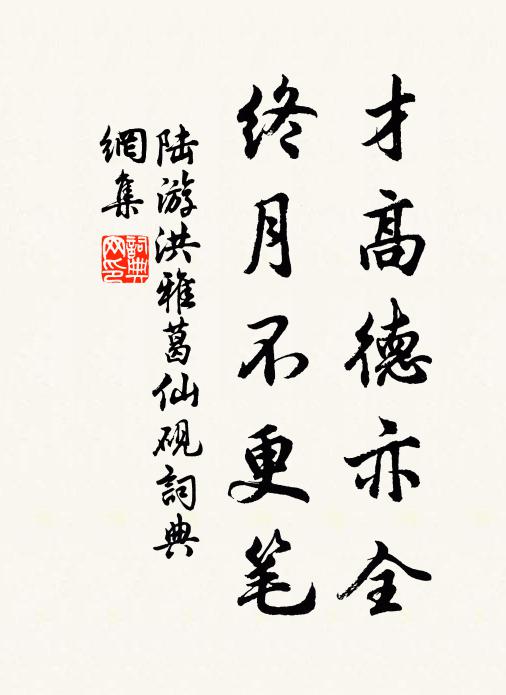 才高德亦全
终月不更笔
陆游洪雅葛仙砚詞典
網集
詞典
网印